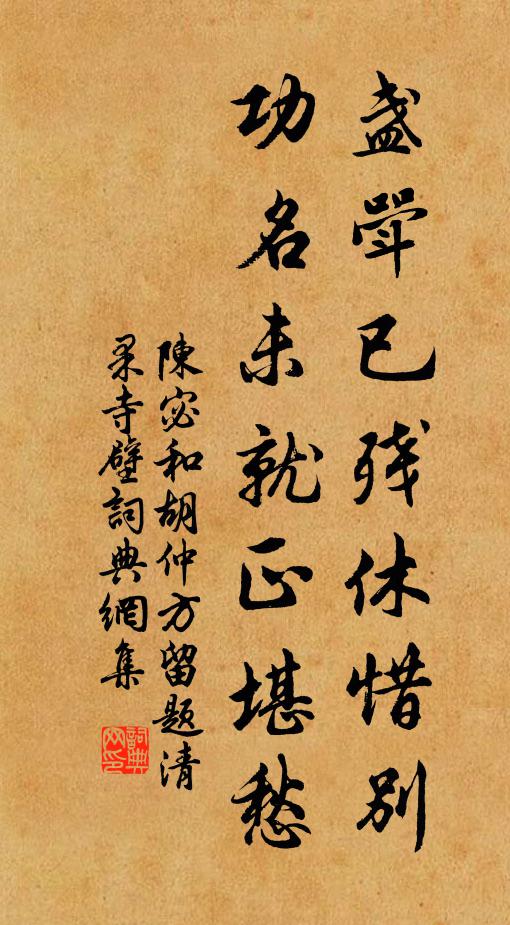 盏斝已残休惜别
功名未就正堪愁
陳宓和胡仲方留题清
果寺壁詞典網集
詞典网印